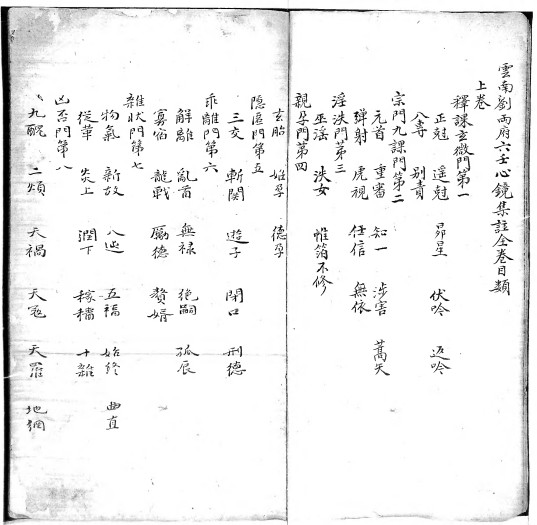 雲南劉兩府六壬心鏡集註全卷目類
上卷
釋課玄微門第一
正尅 遥尅 昴星 伏吟 返吟
八專 别責
宗門九課門第二
元首 重審 知一 涉害 蒿矢
彈射 虎視 任信 無依
淫泆門第三
巫滛 泆女 帷箔不修
親孕門第四
玄胎 姙孕 德孕
隐匿門第五
三交 斬関 遊子 閉口 刑德
乖離門第六
解離 亂首 無禄 绝嗣 孤辰
寡宿 龍戰 厲德 贅婿
雜状門第七
物氣 新故 八迍 五福 始终 曲直
從革 炎上 潤下 稼穡 十雜
凶否門第八
九醜 二煩 天禍 天寇 天羅 地網